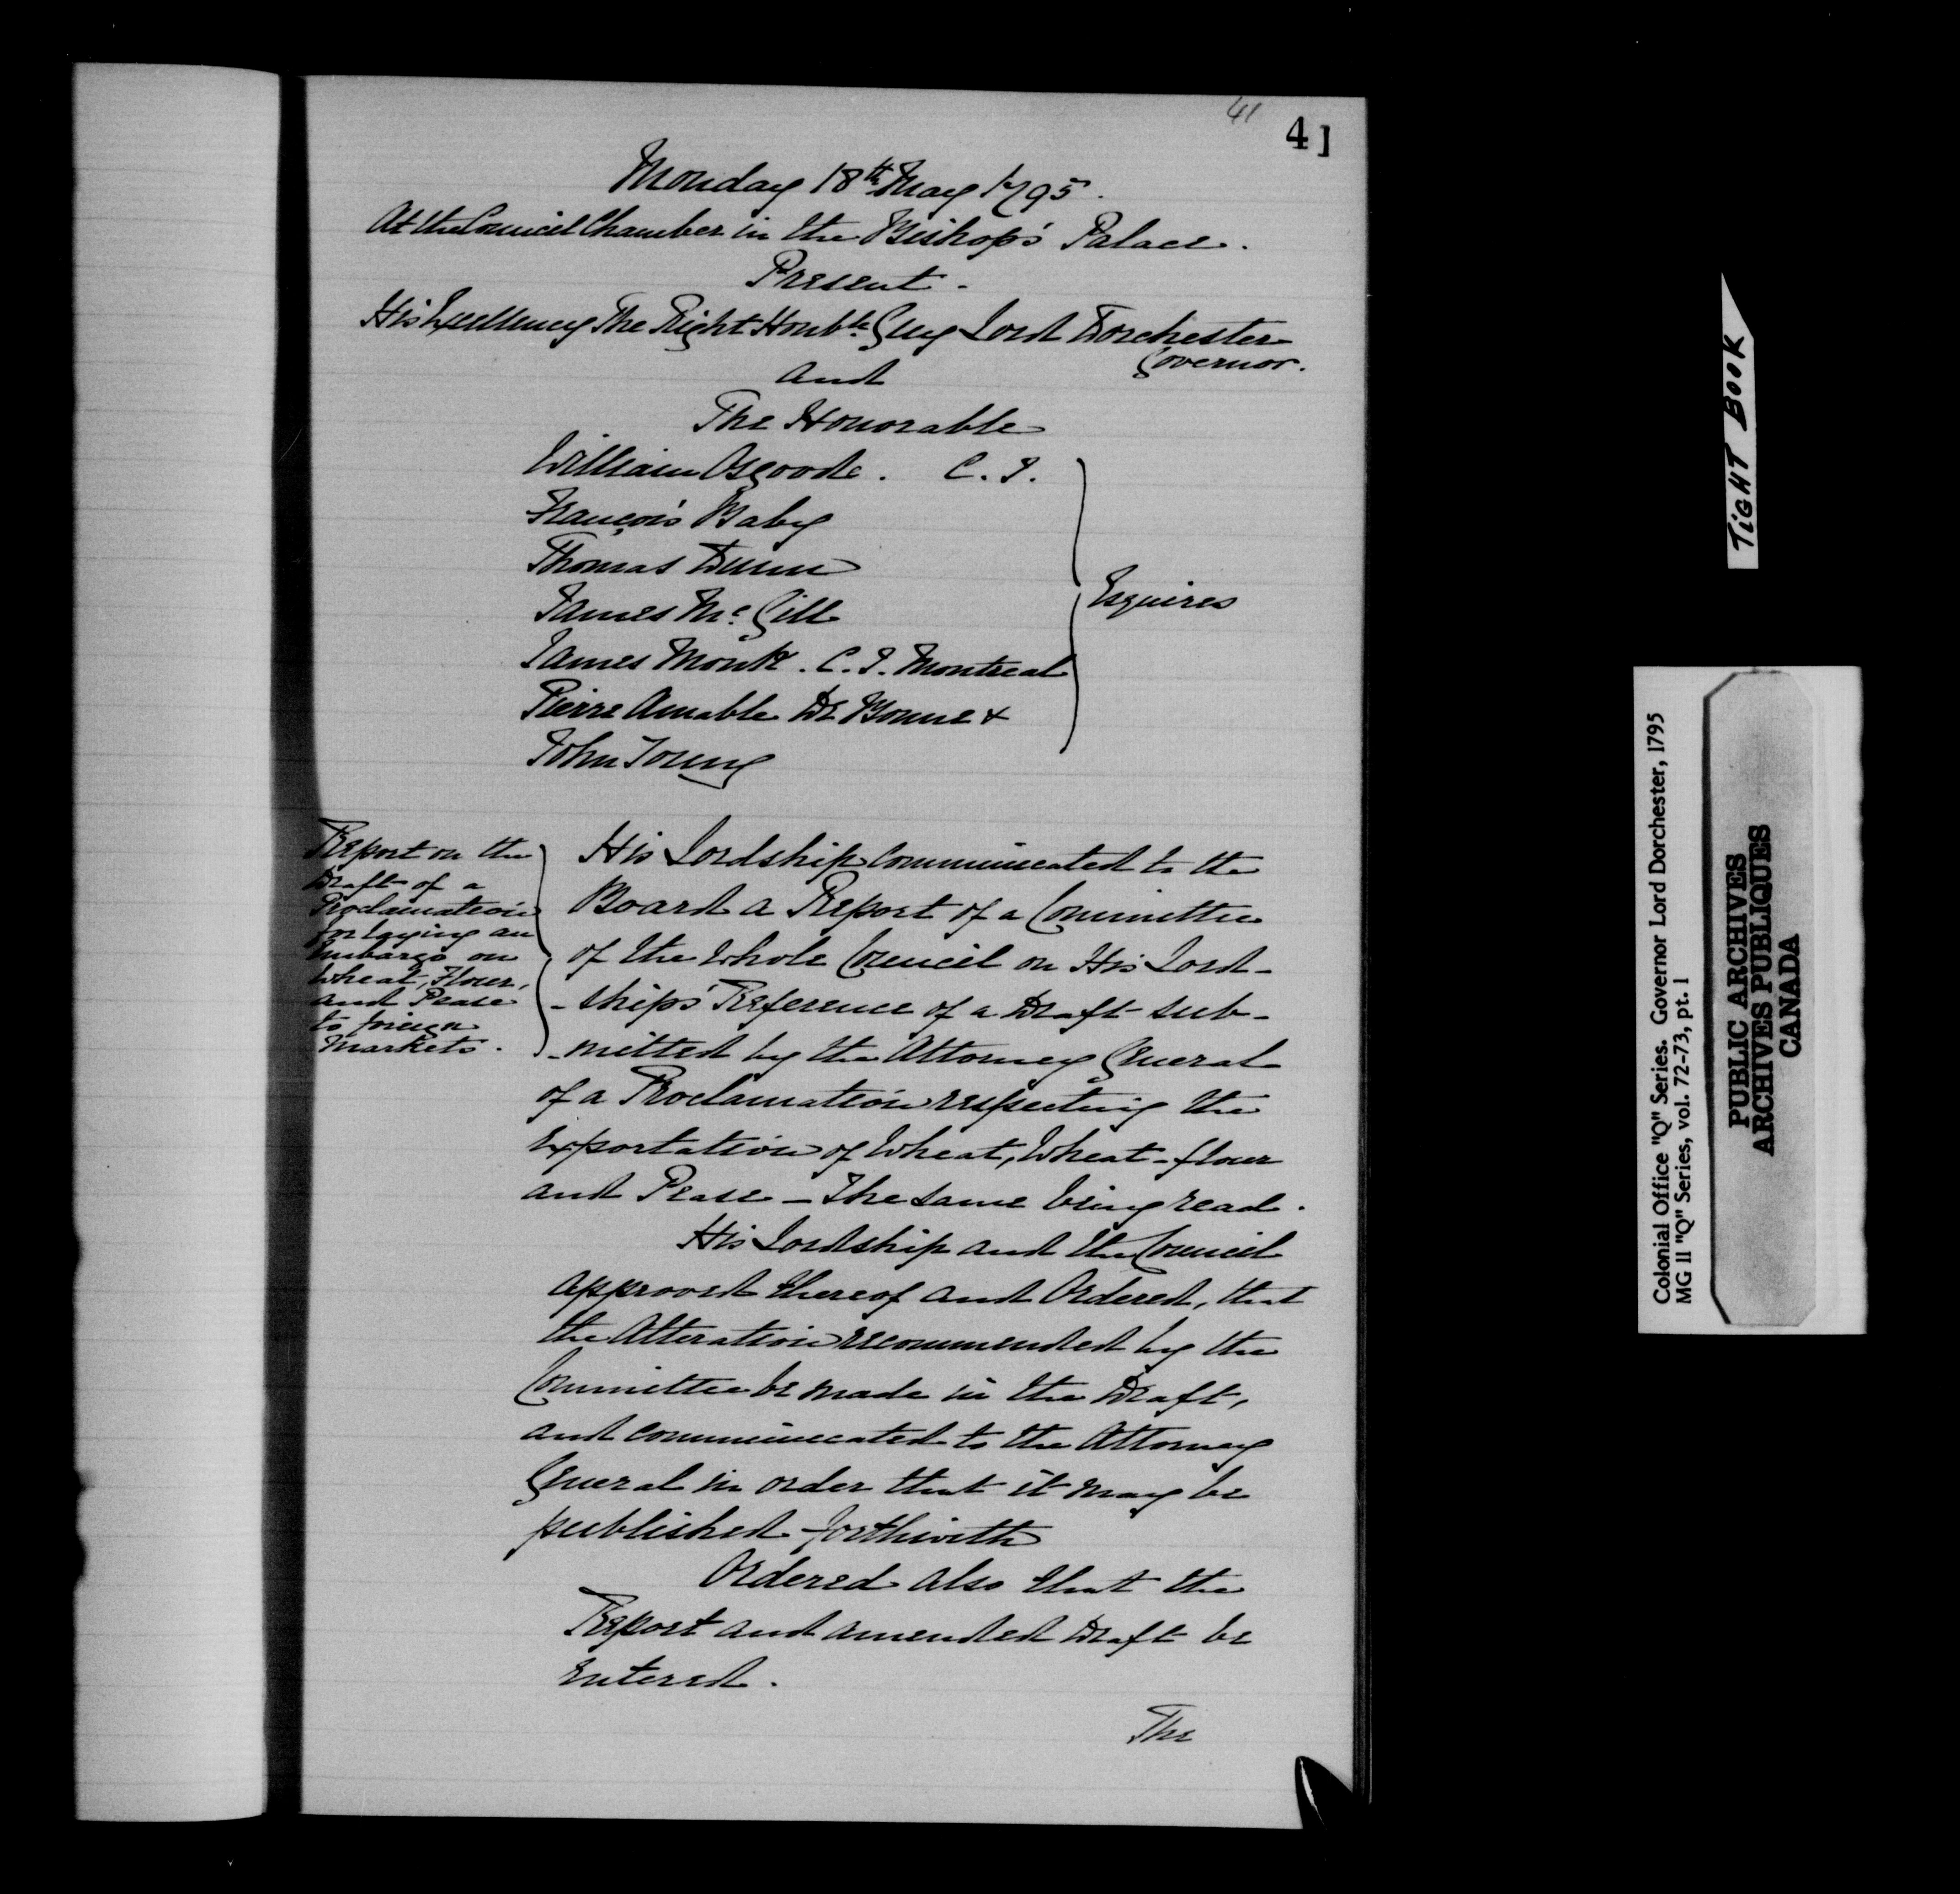 41
41
Monday 18th May 1795.
At the Council Chamber in the Bishop's Palace.
Present -
His Excellency The Right Honble. Guy Lord Dorchester
Governor.
and
The Honorable
William Osgoode. C. J.
François Baby
Thomas Dunn
James Mc. Gill
James Monk. C. J. Montreal
Pierre Amable De Bonne &
John Young
Esquires
Report on the
Draft of a
Proclamation
for laying an
Embargo on
Wheat, Flour,
and Pease
to foreign
Markets.
His Lordship communicated to the
Board a Report of a Committee
of the whole Council on His Lord-
-ships' Reference of a Draft sub-
-mitted by the Attorney General
of a Proclamation respecting the
Exportation of Wheat, Wheat-flour
and Pease - The same being read.
His Lordship and the Council
approved thereof and Ordered, that
the Alteration recommended by the
Committee be made in the Draft,
and communicated to the Attorney
General in order that it may be
published forthwith
Ordered also that the
Report and amended Draft be
entered.
The
TiGHT BOOK
Colonial Office "Q" Series. Governor Lord Dorchester, 1795
MG 11 "Q" Series, vol. 72-73, pt. 1
PUBLIC ARCHIVES
ARCHIVES PUBLIQUES
CANADA